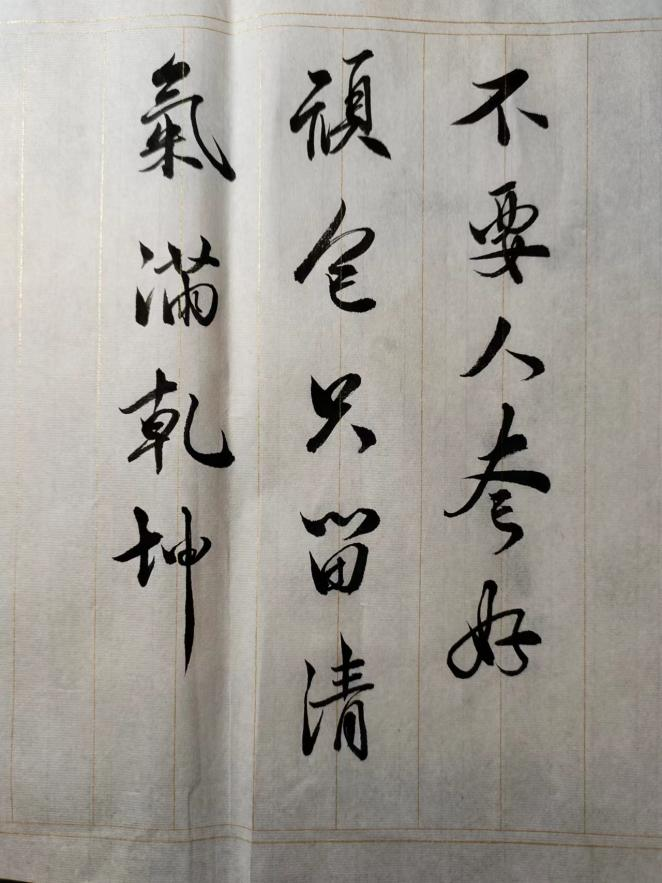 不要人夸好
顏色只留清
氣滿乾坤